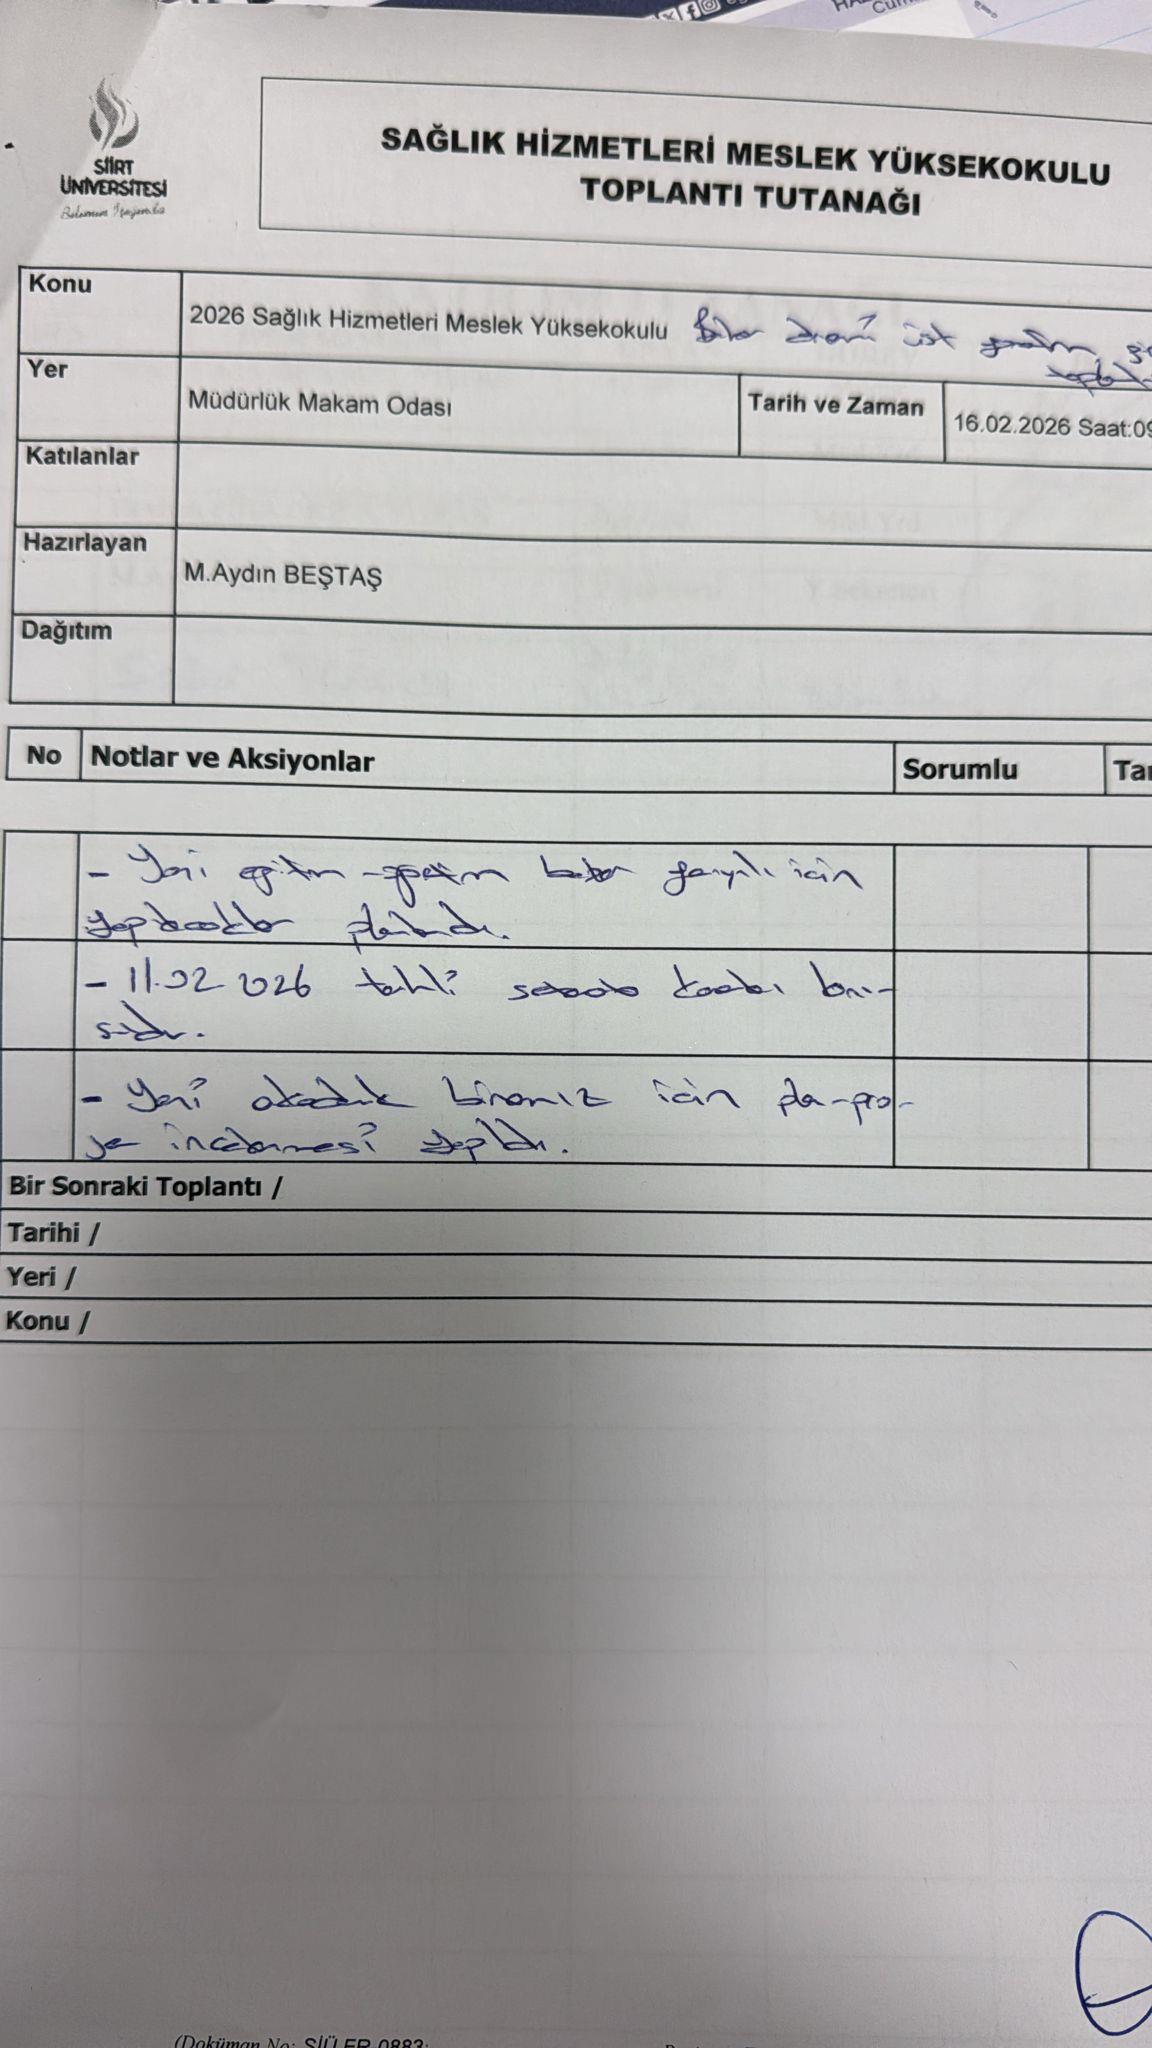 SİİRT
ÜNİVERSİTESİ
SAĞLIK HİZMETLERİ MESLEK YÜKSEKOKULU
TOPLANTI TUTANAĞI
Konu
2026 Sağlık Hizmetleri Meslek Yüksekokulu Bahar dönemi üst yönetim
Yer
Müdürlük Makam Odası
Tarih ve Zaman
16.02.2026 Saat:09
Katılanlar
Hazırlayan
M.Aydın BEŞTAŞ
Dağıtım
No Notlar ve Aksiyonlar Sorumlu
- Yeni eğitim-öğretim bahar yarıyılı için
yapılacaklar planlandı.
- 11.02.2026 tarihli
- Yeni akademik binamız için plan-pro-
je incelemesi yapıldı.
Bir Sonraki Toplantı /
Tarihi /
Yeri /
Konu /
(Doküman No: SİÜ.FR-0883;